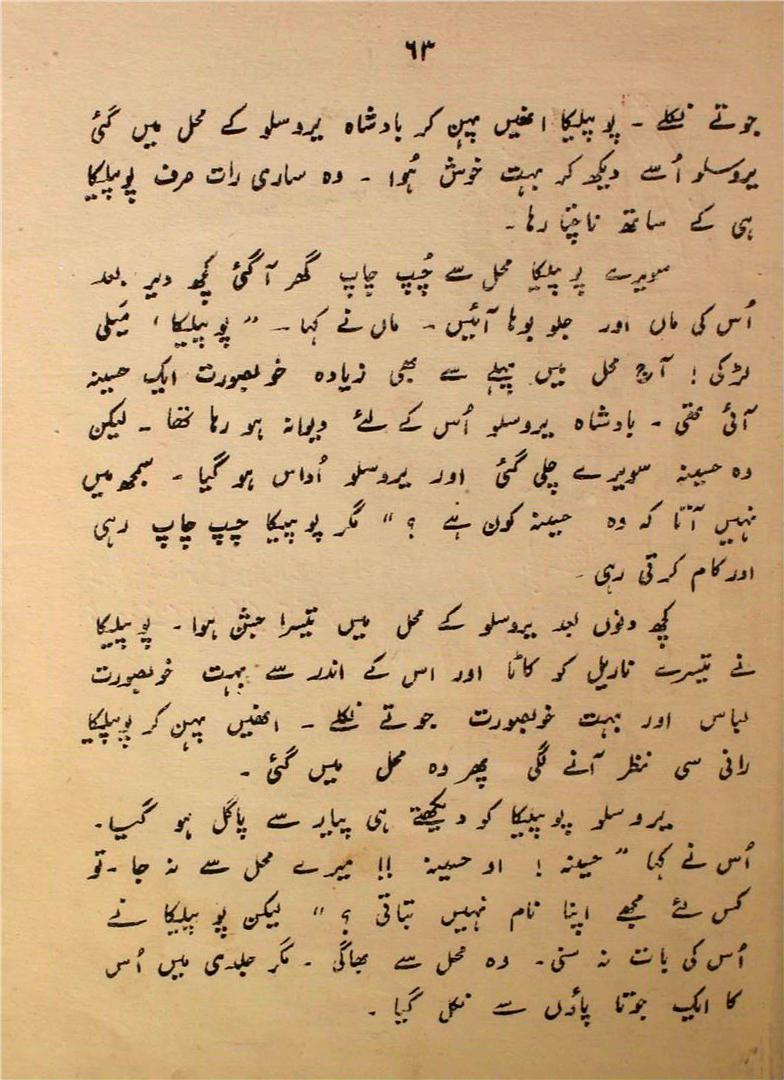 ۶۳
جوتے نکلے ۔ پوپیلیکا انھیں پہن کر بادشاہ یروسلو کے محل میں گئی
یروسلو اُسے دیکھ کر بہت خوش ہُوا ۔ وہ ساری رات صرف پوپیلیکا
ہی کے ساتھ ناچتا رہا ۔
سویرے پوپیلیکا محل سے چُپ چاپ گھر آ گئی کچھ دیر بعد
اُس کی ماں اور جلو بوہا آئیں ۔ ماں نے کہا ۔ " پوپیلیکا ، مَیلی
لڑکی ! آج محل میں پہلے سے بھی زیادہ خوبصورت ایک حسینہ
آئی تھی ۔ بادشاہ یروسلو اُس کے لئے دیوانہ ہو رہا تھا ۔ لیکن
وہ حسینہ سویرے چلی گئی اور یروسلو اُداس ہو گیا ۔ سمجھ میں
نہیں آتا کہ وہ حسینہ کون ہے ؟ " مگر پوپیلیکا چپ چاپ رہی
اور کام کرتی رہی ۔
کچھ دنوں بعد یروسلو کے محل میں تیسرا جشن ہوا ۔ پوپیلیکا
نے تیسرے ناریل کو کاٹا اور اس کے اندر سے بہت خوبصورت
لباس اور بہت خوبصورت جوتے نکلے ۔ انھیں پہن کر پوپیلیکا
رانی سی نظر آنے لگی پھر وہ محل میں گئی ۔
یروسلو پوپیلیکا کو دیکھتے ہی پیار سے پاگل ہو گیا ۔
اُس نے کہا " حسینہ ! او حسینہ !! میرے محل سے نہ جا ۔ تو
کس لئے مجھے اپنا نام نہیں بتاتی ؟ " لیکن پوپیلیکا نے
اُس کی بات نہ سنی ۔ وہ محل سے بھاگی ۔ مگر جلدی میں اُس
کا ایک جوتا پاؤں سے نکل گیا ۔